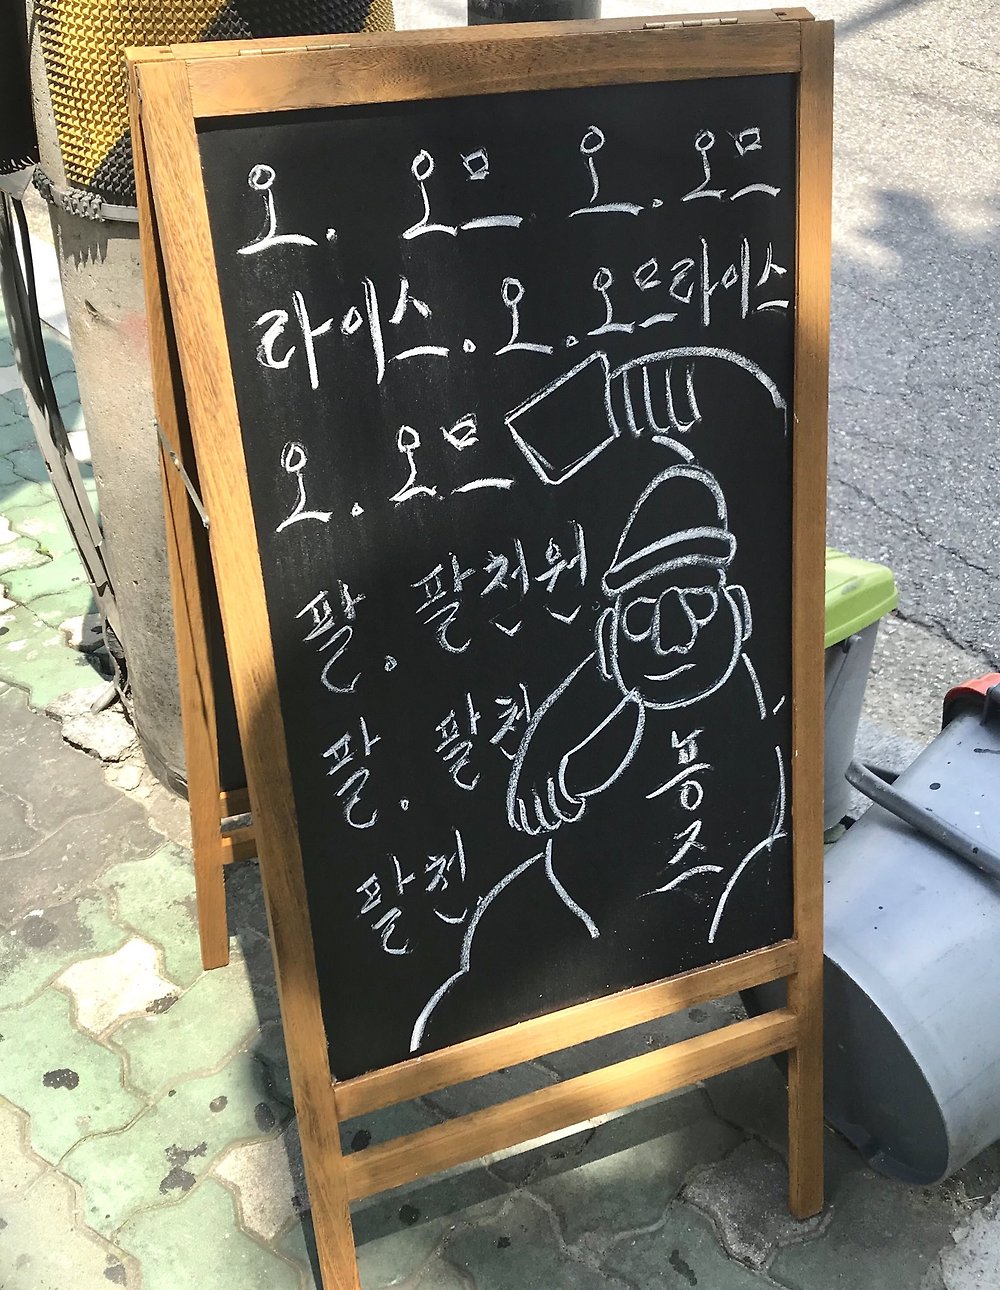 오. 오므 오. 오므
라이스. 오. 오므라이스
오. 오므
팔. 팔천원.
팔. 팔천
팔천
뇽
즈